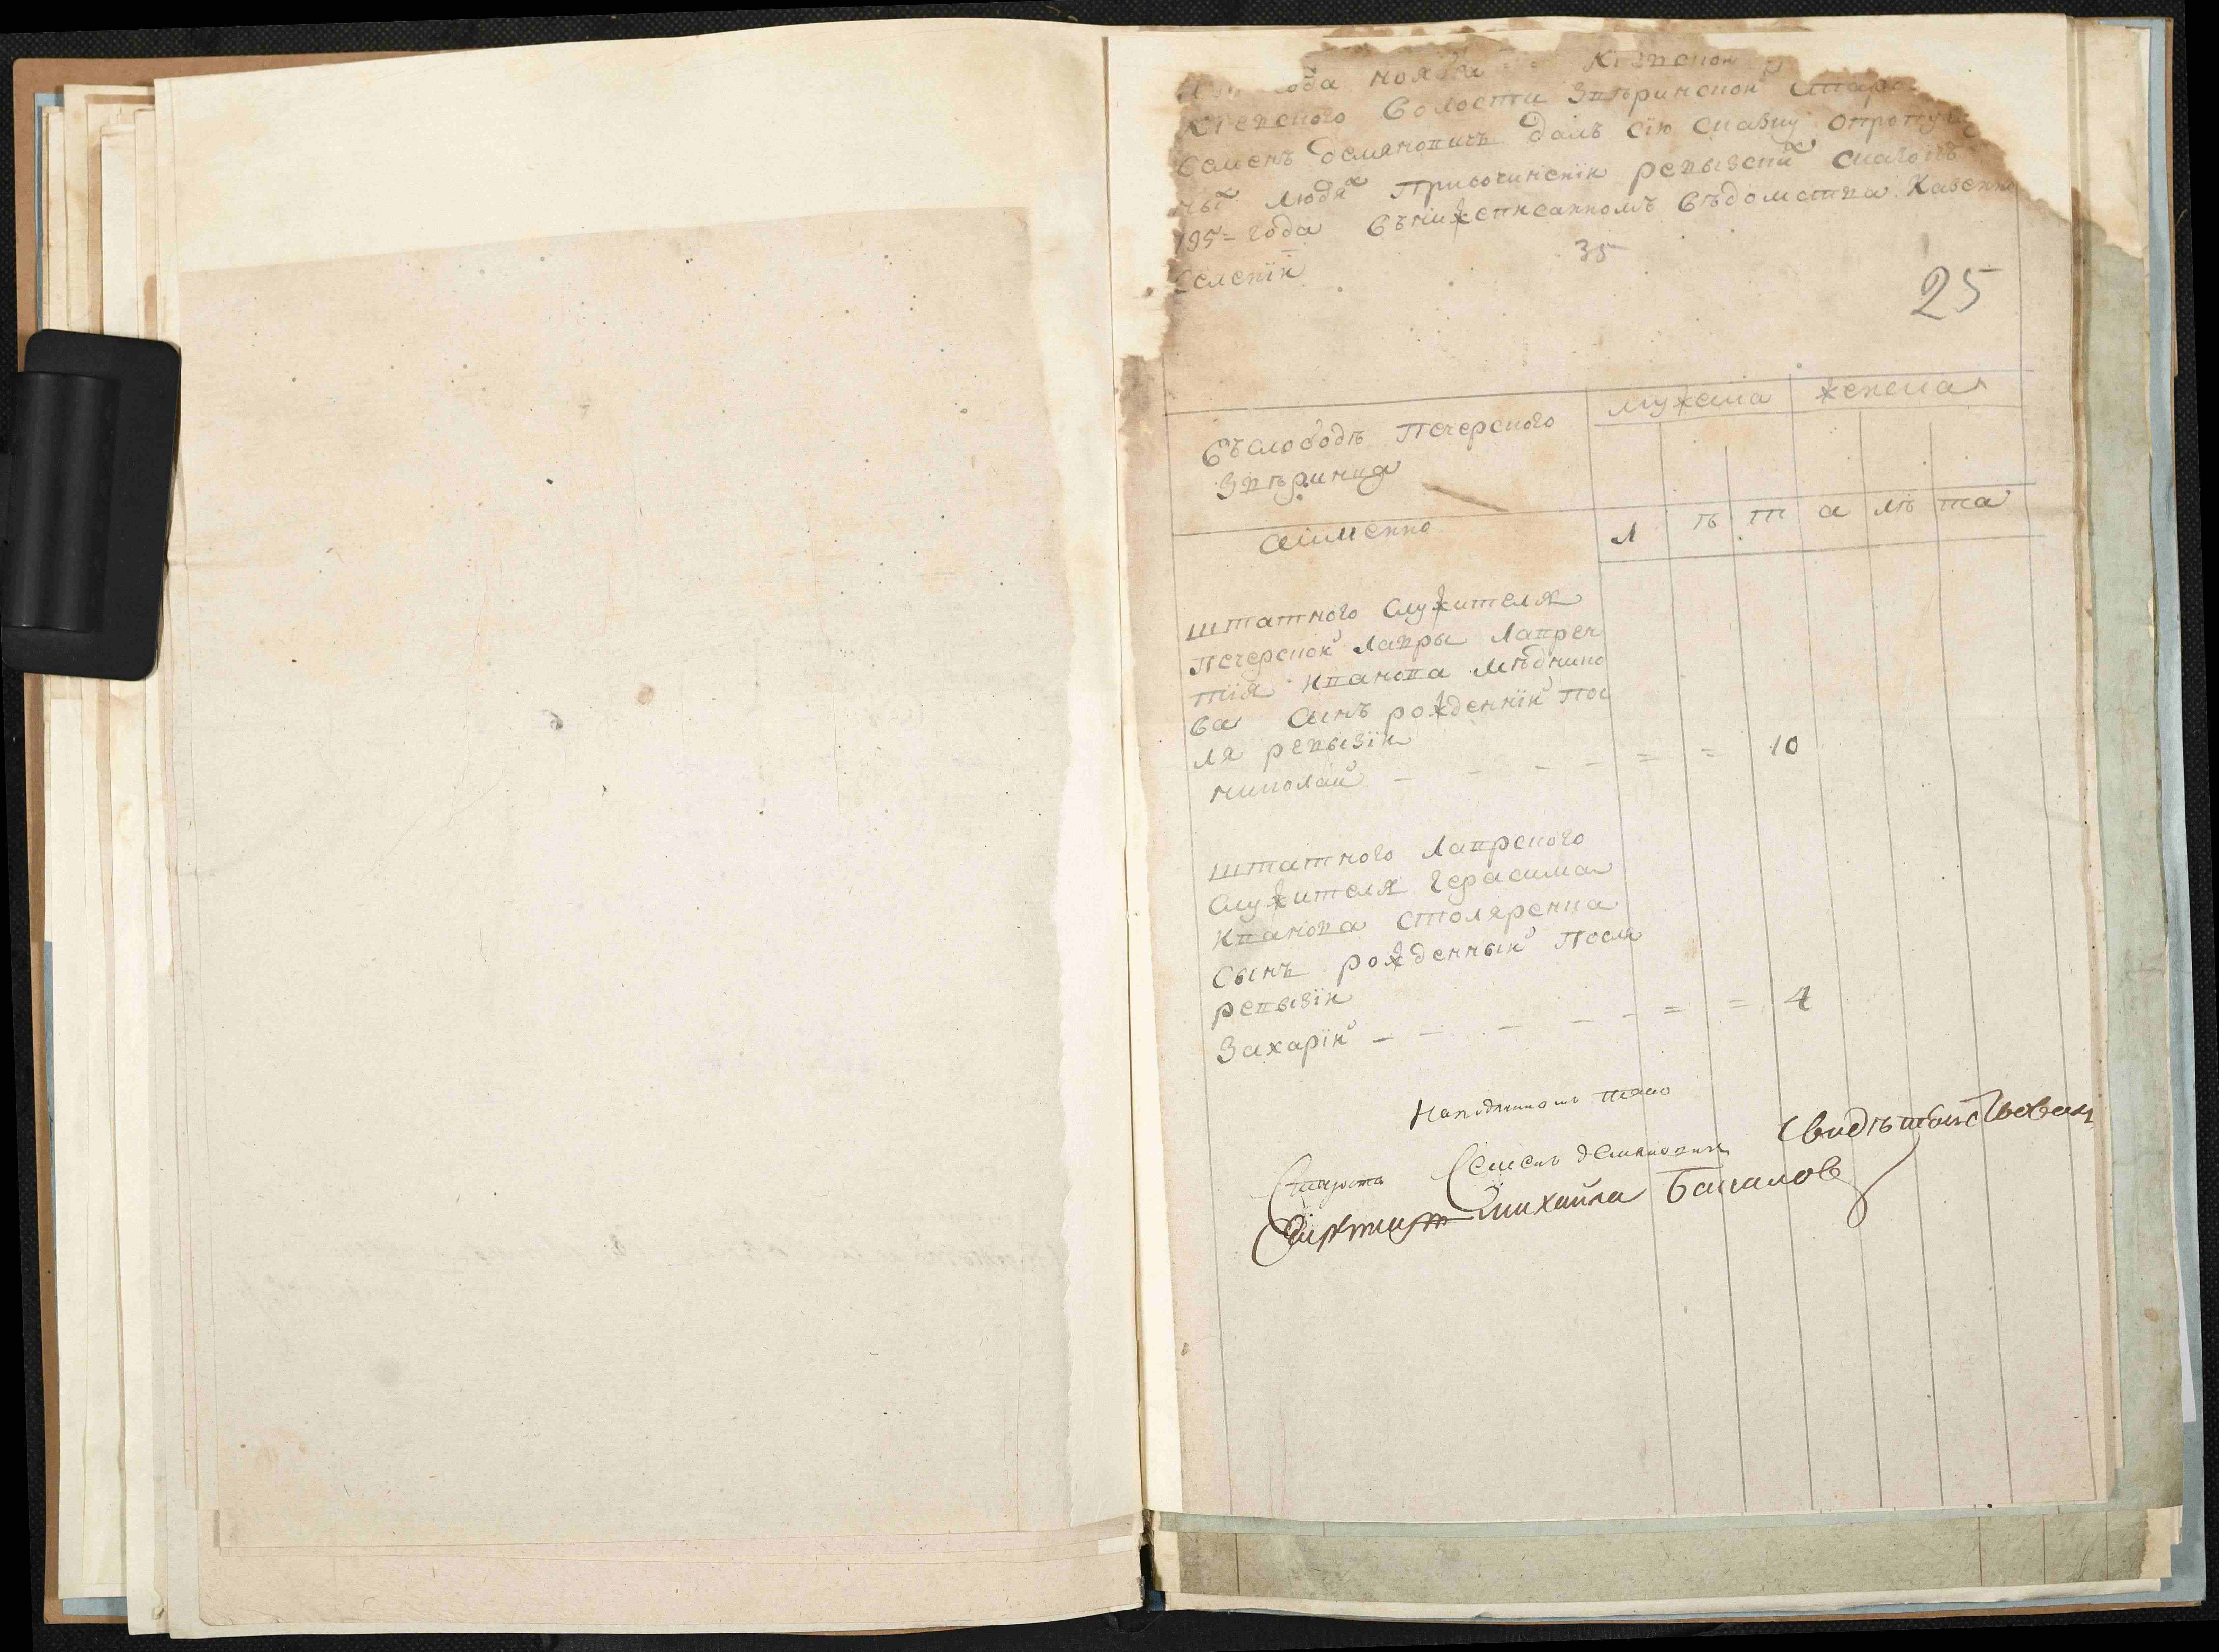 ода ноября Кіевской
Кіевского Волости Звѣринской Старо
Семенъ Демяновичъ далъ сію сказку опропущ
ных людях Присочиненіи ревызских сказокъ
795= года Вънижеписанномъ Вѣдомства Казенно
Селеніи
35
25
Въслободѣ Печерского Звѣринца
мужеска женска
аименно
Л ѣ т а лѣ та
штатного служителя
Печерской Лавры Лаврен
тія Иванова Мѣднико
ва Синъ рожденній пос
ля ревызіи
николай - - - - = = 10
штатного Лаврского
служителя Герасима
Иванова Столяренка
Сынъ рожденный После
ревызіи
Захарій - - - - - = = 4
Староста Семенъ демяновичъ
Свидѣтельствовал
михайла Башалов